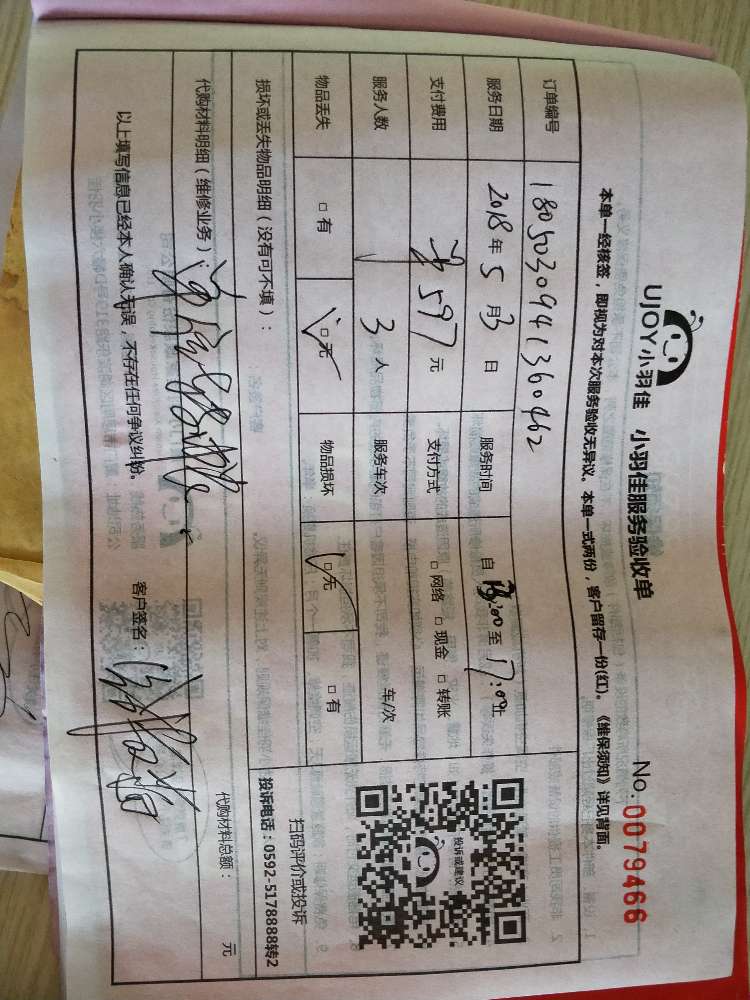 UJOY小羽佳 小羽佳服务验收单
No. 0079466
本单一经核签，即视为对本次服务验收无异议。本单一式两份，客户留存一份(红)。《维保须知》详见背面。
订单编号 1805030941360462
服务日期 2018年5月3日 服务时间 自 13:00 至 17:00止
支付费用 597元 支付方式 □网络 □现金 □转账
服务人数 3人 服务车次 车/次
物品丢失 □有 □无 物品损坏 □无 □有
投诉或建议
扫码评价或投诉
损坏或丢失物品明细（没有可不填）：
投诉电话：0592-5178888转2
代购材料明细（维修业务）：
代购材料总额： 元
以上填写信息已经本人确认无误，不存在任何争议纠纷。 客户签名：